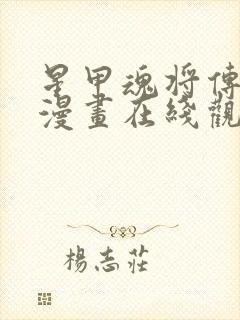 星甲魂将傳
漫畫在綫觀
楊志莊